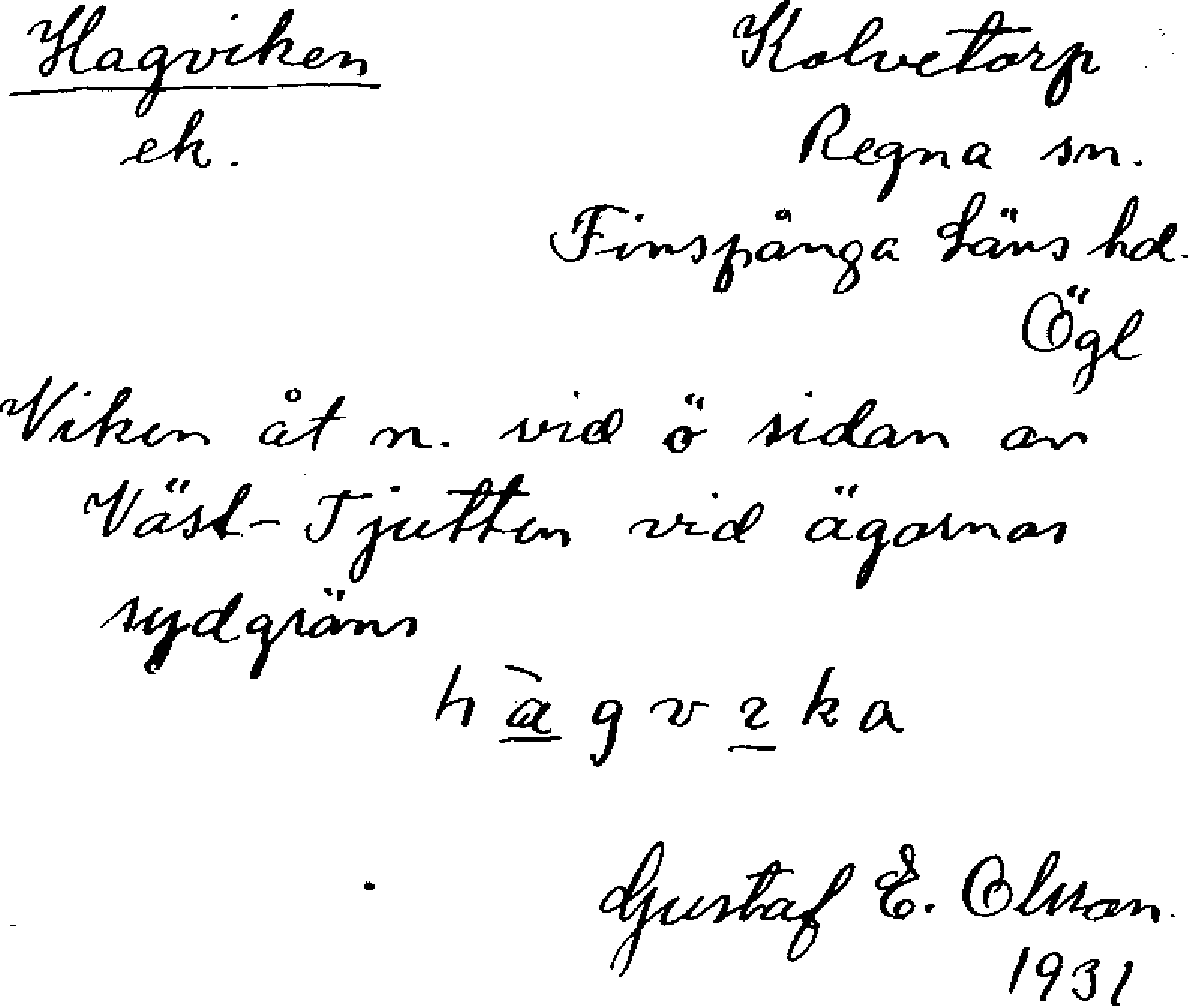 Hagviken
ek.
Kolvetorp
Regna sn.
Finspånga Läns hd.
Ögl
Viken åt n. vid ö sidan av
Väst-Tjutten vid ägornas
sydgräns
Gustaf E. Olsson
1931